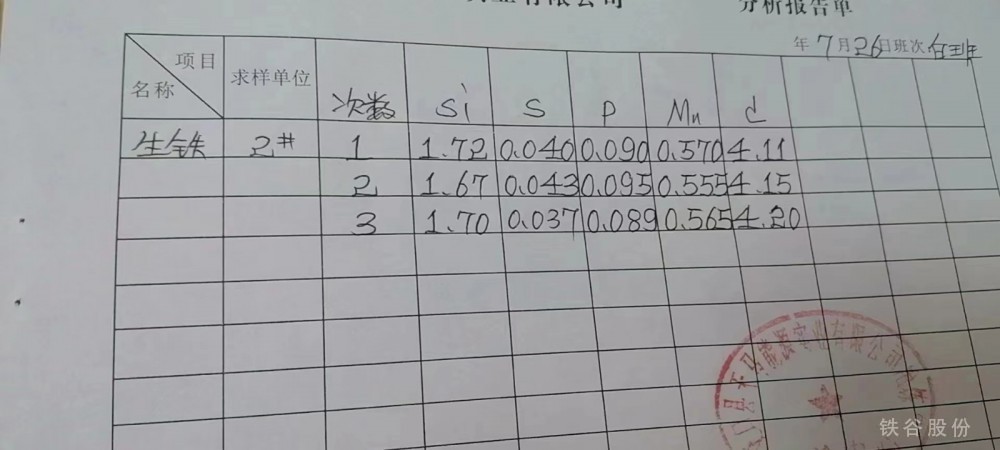 业有限公司 分析报告单
年7月26日班次 白班
项目 名称 求样单位 次数 Si S P Mn C
生铁 2# 1 1.72 0.040 0.090 0.570 4.11
2 1.67 0.043 0.095 0.555 4.15
3 1.70 0.037 0.089 0.565 4.20
实业有限公司
铁谷股份